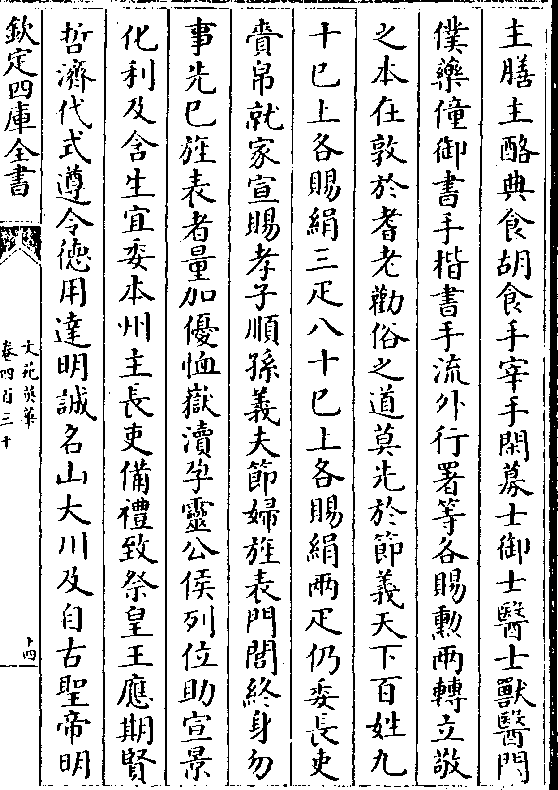 主膳主酪典食胡食手宰手閑募士御士醫士獸醫門
僕藥僮御書手楷書手流外行署等各賜勲兩轉立敬
之本在敦於耆老勸俗之道莫先於節義天下百姓九
十已上各賜絹三疋八十已上各賜絹兩疋仍委長吏
賫帛就家宣賜孝子順孫義夫節婦旌表門閭終身勿
事先已旌表者量加優恤嶽瀆孕靈公侯列位助宣景
化利及含生宜委本州主長吏備禮致祭皇王應期賢
哲濟代式遵令徳用達明誠名山大川及自古聖帝明
欽定四庫全書
文苑英華
卷四百三十
十四